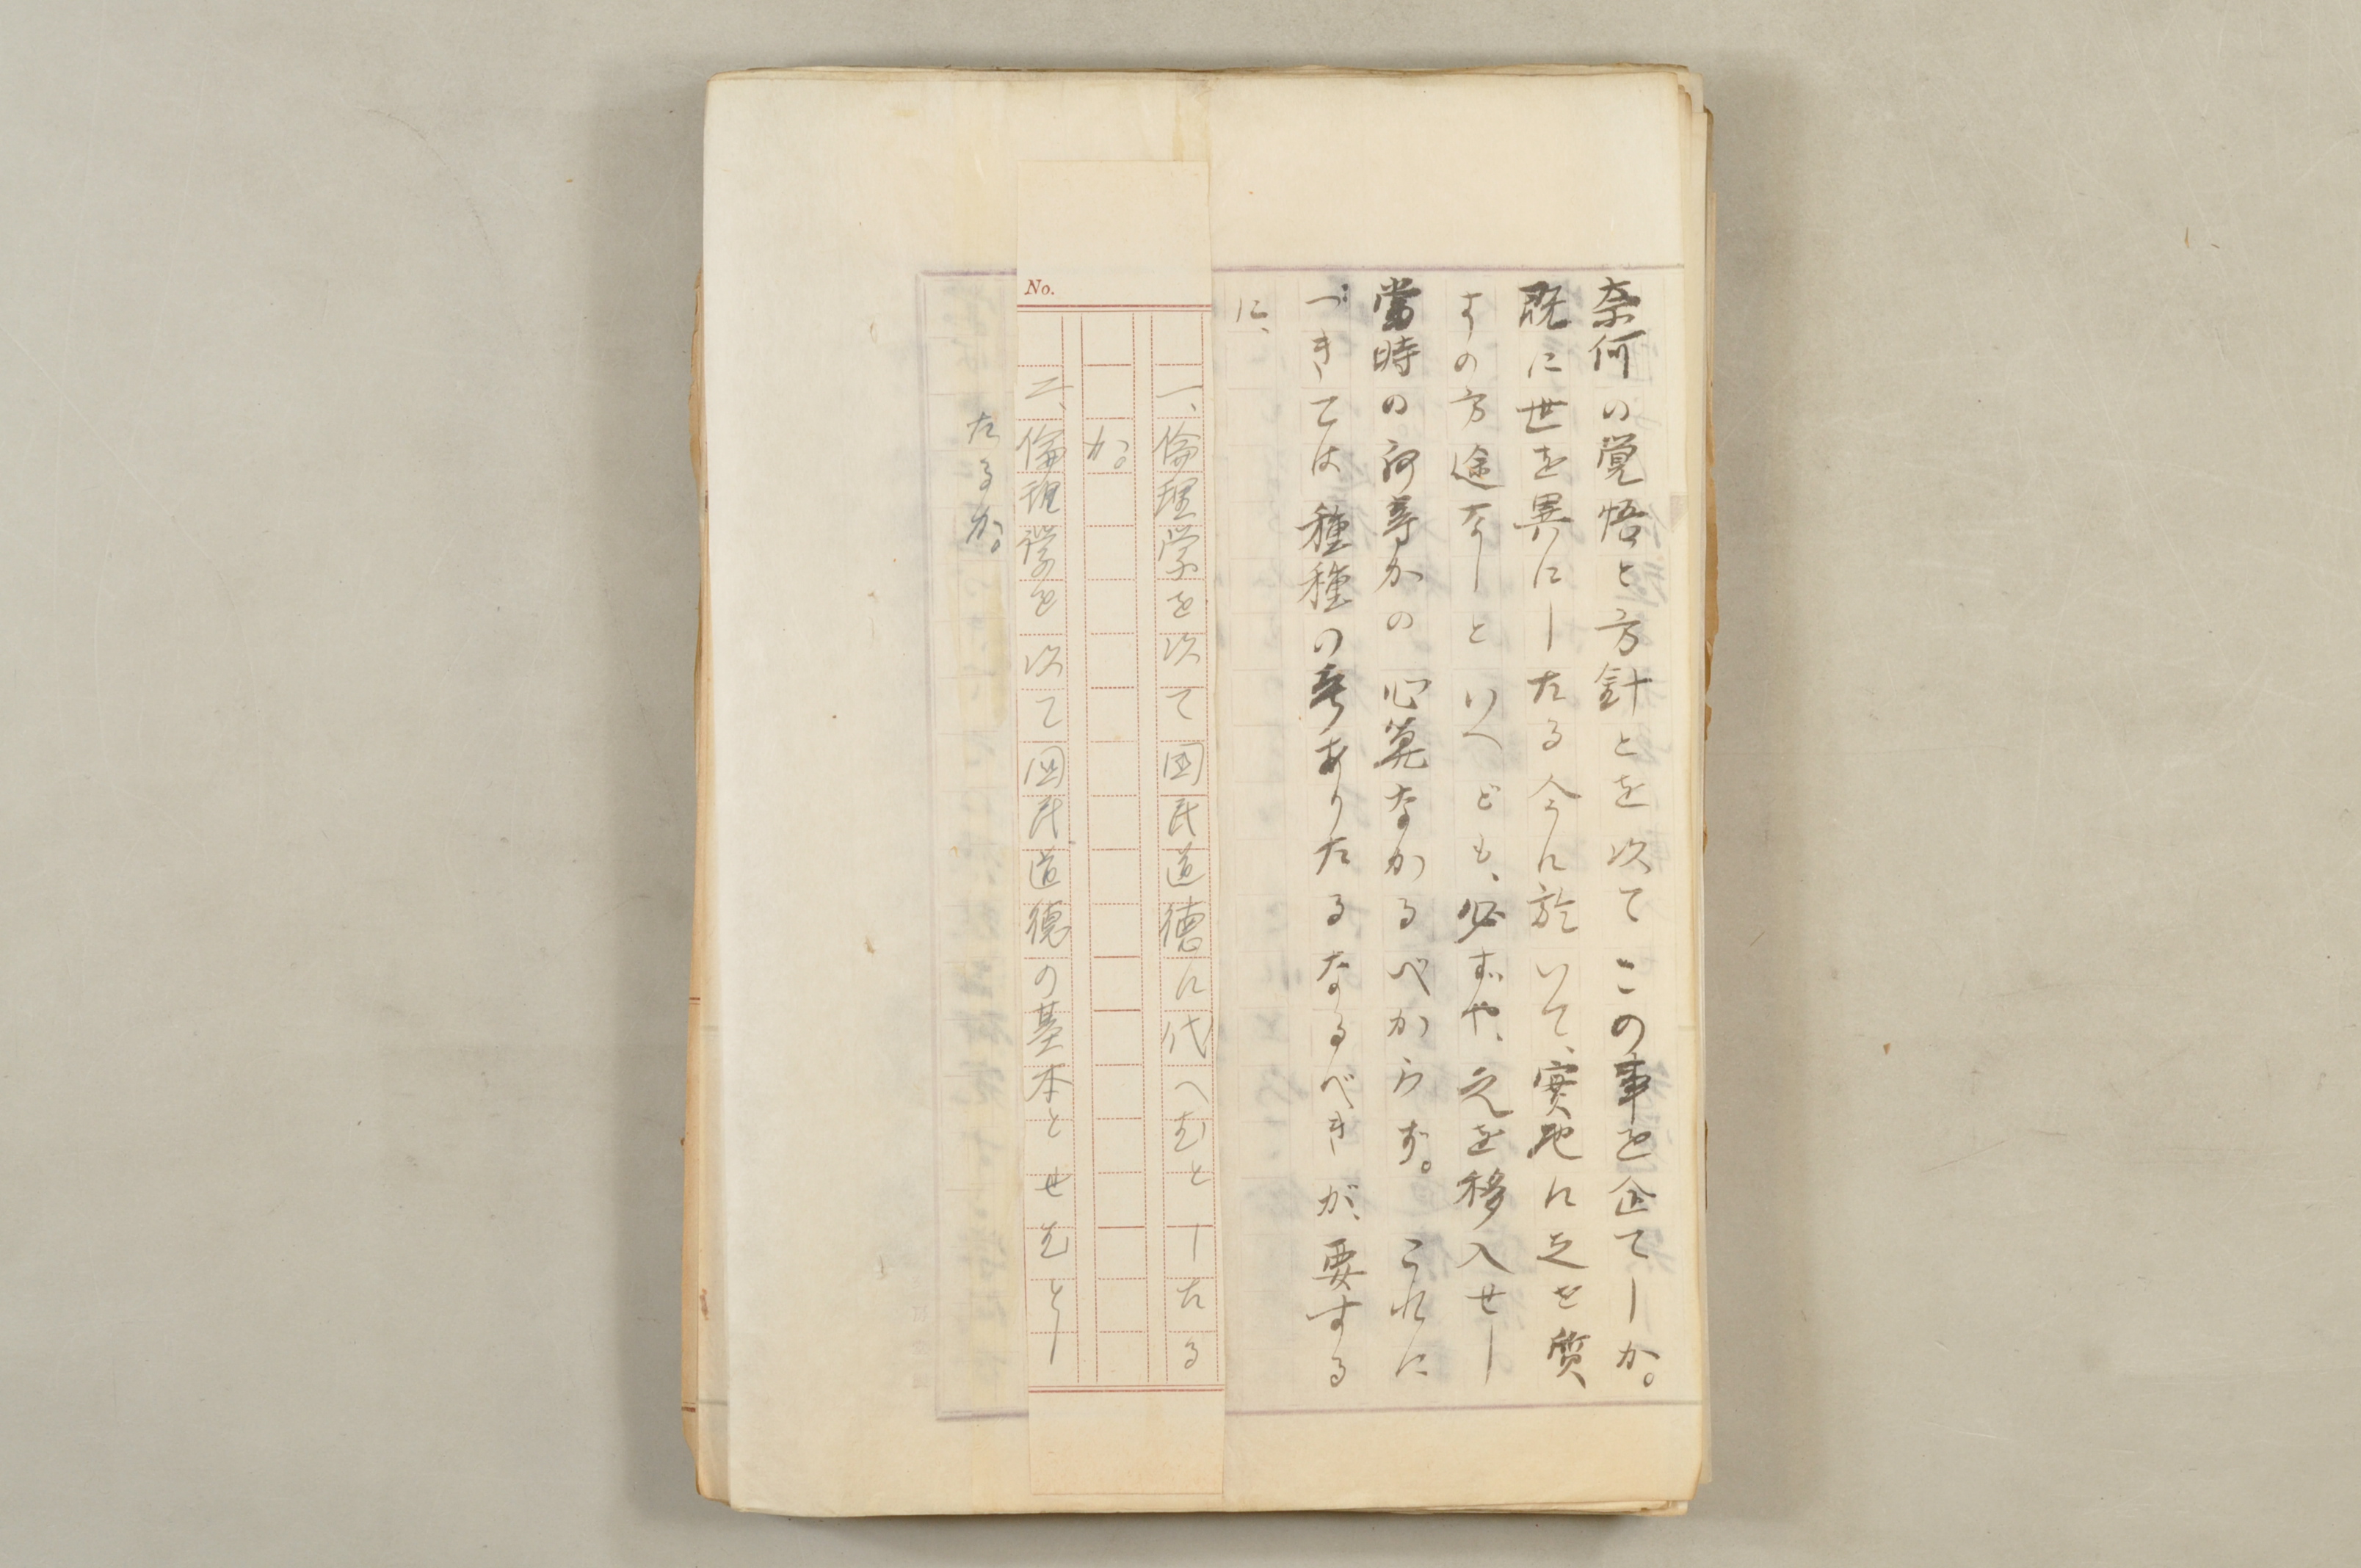 奈何の覚悟と方針とを以てこの事を企てしか。
既に世を異にしたる今に於いて、實地に之を質
すの方途なしといへども、必ずや、之を移入せし
當時の何等かの心算なかるべからず。これに
づきては種種の考ありたるなるべきが、要する
に、
No.
一、倫理学を以て国民道徳に代へむとしたる
か。
二、倫理学を以て国民道徳の基本とせむとし
たるか。